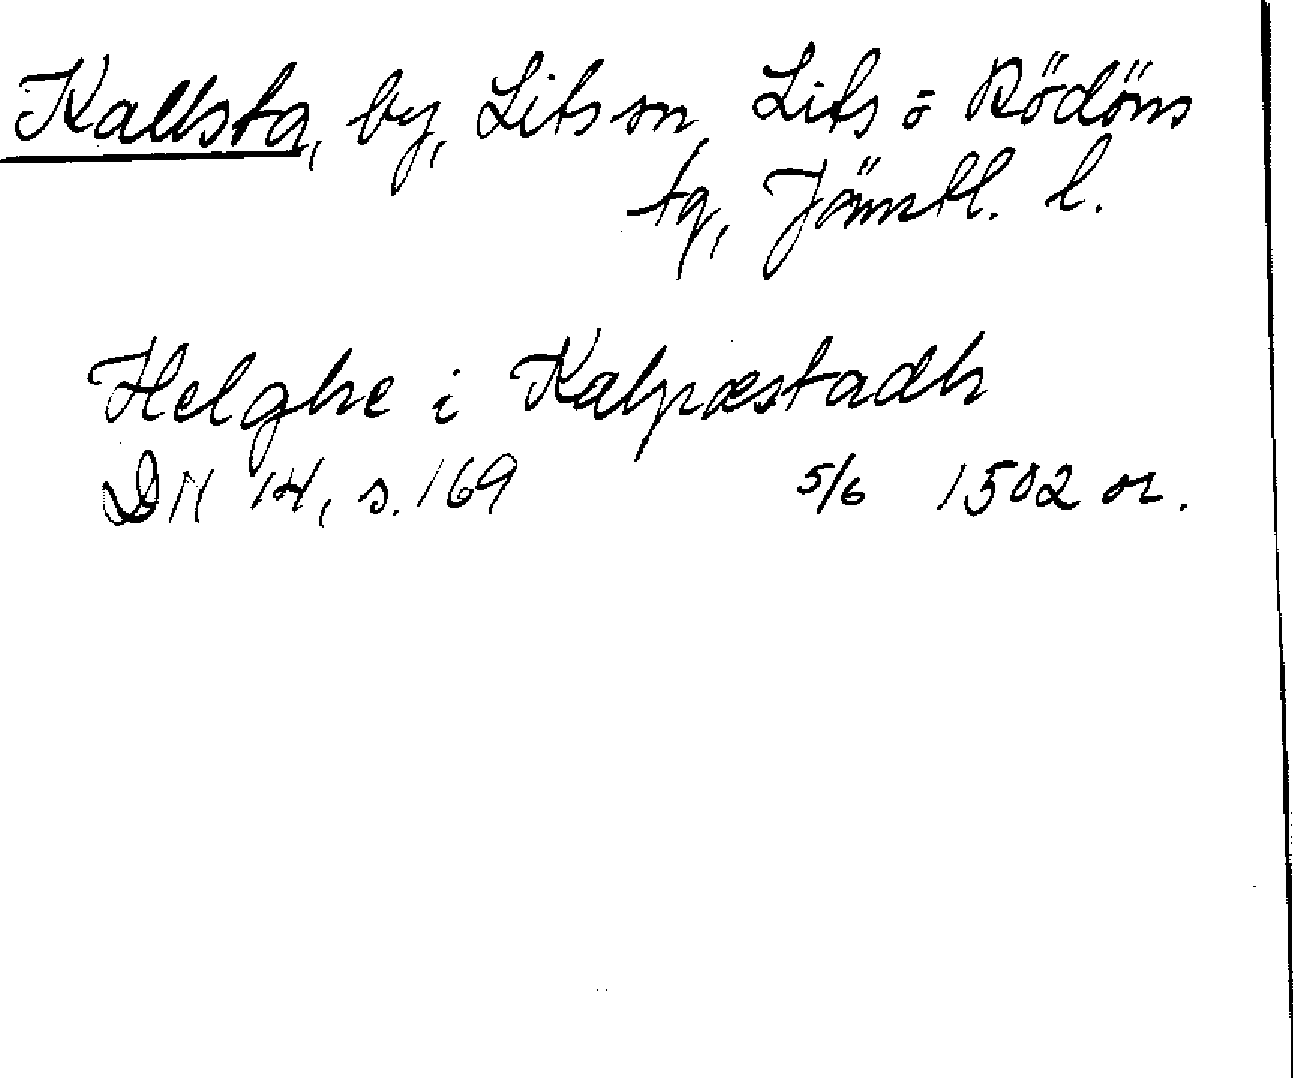 Kallsta, by, Lits sn, Lits o Rödöns
tg, Jämtl. l.
Helghe i Kalpæstadh
DN 14, s. 169 5/6 1502 or.